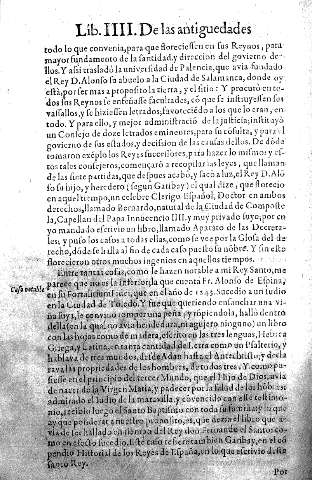 Lib. IIII. De las antiguedades
todo lo que convenia, para que floreciessen en sus Reynos, para
mayor fundamento de la santidad, y direccion del govierno de-
llos. Y assi trasladò la universidad de Palencia, que avia funda-
do el Rey D. Alonso su abuelo a la Ciudad de Salamanca, donde oy
està, por ser mas a proposito la tierra, y el sitio: Y procurò en to-
dos sus Reynos se enseñasse facultades, cõ que se instruyessen sus
vassallos, y se hiziessen letrados, favoreciẽdo a los que lo eran, en
todo. Y para ello, y mejor administraciõ de la justicia, instituyò
un Consejo de doze letrados eminentes, para su cõsulta, y para el
govierno de sus estados, y decision de las causas dellos. De dõde
tomaron exẽplo los Reyes sucessores, para hazer lo mismo, y es-
tos tales consejeros, començaron a recopilar las leyes, que llaman
de las siete partidas, que despues acabò, y sacò a luz, el Rey D. Alõ
so su hijo, y heredero (segun Garibay) el qual dize, que florecio
en aquel tiempo, un celebre Clerigo Español, Doctor en ambos
derechos, llamado Bernardo, natural de la Ciudad de Composte
la, Capellan del Papa Innocencio IIII. y muy privado suyo, por cu
yo mandado escrivio un libro, llamado Aparato de las Decreta-
les, y puso los casos a todas ellas, como se vee por la Glosa del de-
recho, dõde se halla al fin de cada caso puesto su nõbre. Y sin este
florecieron otros muchos ingenios en aquellos tiempos.
Entre tantas cosas, como le hazen notable a mi Rey Santo, me
Caso notable. parece que no es la inferior, la que cuenta Fr. Alonso de Espina,
en su Fortalitium fidei, que en el año de
la Ciudad de Toledo. Y fue que queriendo ensanchar una vi-
ña suya, le convino romper una peña, y rõpiendola, hallò dentro
della (en la qual no avia hendedura, ni agujero ninguno) un libro
con las hojas como de madera, escrito en tres lenguas, Hebrea
Griega, y Latina, en tanta cantidad de letra como un Psalterio, y
hablava de tres mundos, desde Adan hasta el Antechristo, y decla
rava las propiedades de los hombres, de todos tres. Y como pu-
siesse en el principio del tercer Mundo, que el Hijo de Dios, avia
de nacer de la Virgen Maria, y padecer por la salud de los hõbres;
admirado el Judio de la maravilla, y convencido con este testimo-
nio, recibio luego el Santo Baptismo con toda su familia
ay que põderar a nuestro proposito, es, que dezia el libro que
via de ser hallado en tiempo del Rey don Fernando el Santo: co-
mo en efecto sucedio. Este caso refiere tambien Garibay, en el cõ
pendio Historial de los Reyes de España, en lo que escrivio deste
santo Rey.
Por